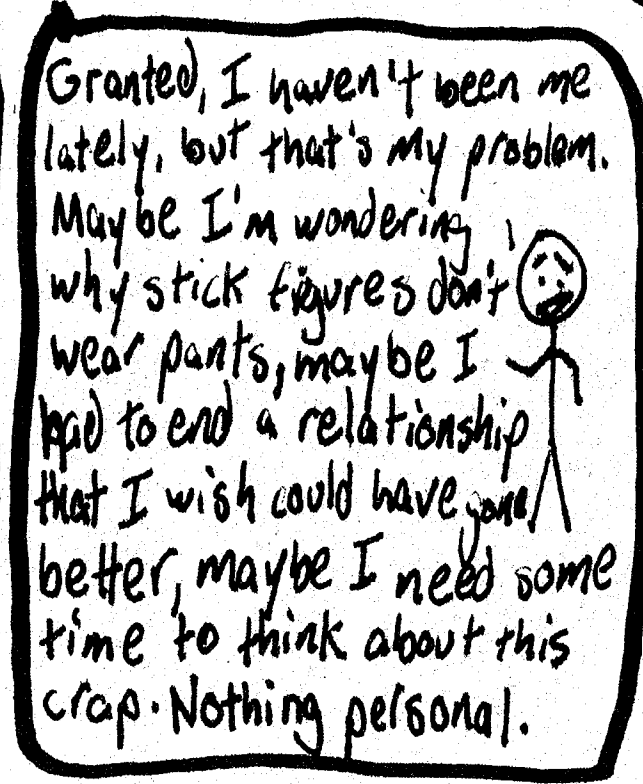 Granted, I haven't been me
lately, but that's my problem.
Maybe I'm wondering
why stick figures don't
wear pants, maybe I
had to end a relationship
that I wish could have gone
better, maybe I need some
time to think about this
crap. Nothing personal.